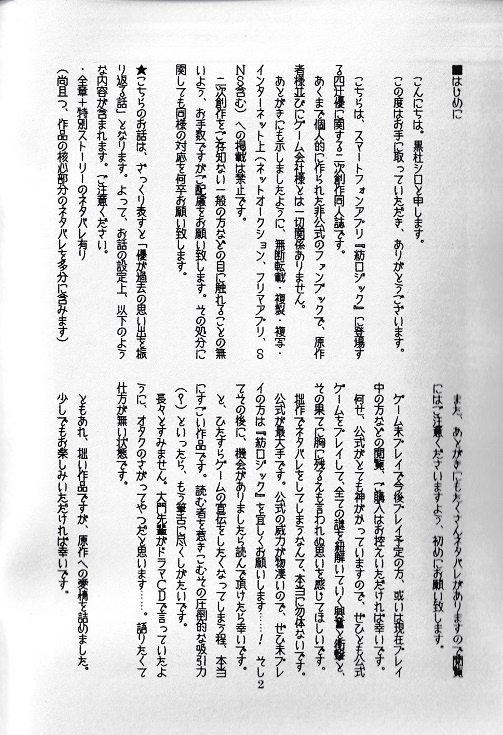 ■はじめに
こんにちは。黒杜シロと申します。
この度はお手に取っていただき、ありがとうございます。
こちらは、スマートフォンアプリ『紡ロジック』に登場す
る四辻優に関する二次創作同人誌です。
あくまで個人的に作られた非公式のファンブックで、原作
者様並びにゲーム会社様とは一切関係ありません。
あとがきにも示しましたように、無断転載・複製・複写・
インターネット上(ネットオークション、フリマアプリ、S
NS含む)への掲載は禁止です。
二次創作をご存知ない一般の方などの目に触れることの無
いよう、お手数ですがご配慮をお願い致します。その処分に
関しても同様の対応を何卒お願い致します。
★こちらのお話は、ざっくり表すと「優が過去の思い出を振
り返る話」となります。よって、お話の設定上、以下のよう
な内容が含まれます。ご注意ください。
・全章+特別ストーリーのネタバレ有り
(尚且つ、作品の核心部分のネタバレを多分に含みます)
また、あとがきにもたくさんネタバレがありますので閲覧
にはご注意くださいますよう、初めにお願い致します。
ゲーム未プレイで今後プレイ予定の方、或いは現在プレイ
中の方などの閲覧、ご購入はお控えいただければ幸いです。
何せ、公式がとても神がかっていますので、ぜひとも公式
ゲームをプレイして、全ての謎を紐解いていく興奮と衝撃と、
その果てに胸に残るえも言われぬ思いを感じてほしいです。
拙作でネタバレをしてしまうなんて、本当に勿体ないです。
公式が最大手です。公式の威力が物凄いので、ぜひ未プレ
イの方は『紡ロジック』を宜しくお願いします……!　そし
てその後に、機会がありましたら読んで頂けたら幸いです。
と、ひたすらゲームの宣伝をしたくなってしまう程、本当
にすごい作品です。読む者を惹きこむその圧倒的な吸引力
(?)といったら、もう筆舌に尽くしがたいです。
長々とすみません。大門先輩がドラマCDで言っていたよ
うに、オタクのさがってやつだと思います……。語りたくて
仕方が無い状態です。
ともあれ、拙い作品ですが、原作への愛情を詰めました。
少しでもお楽しみいただければ幸いです。
2